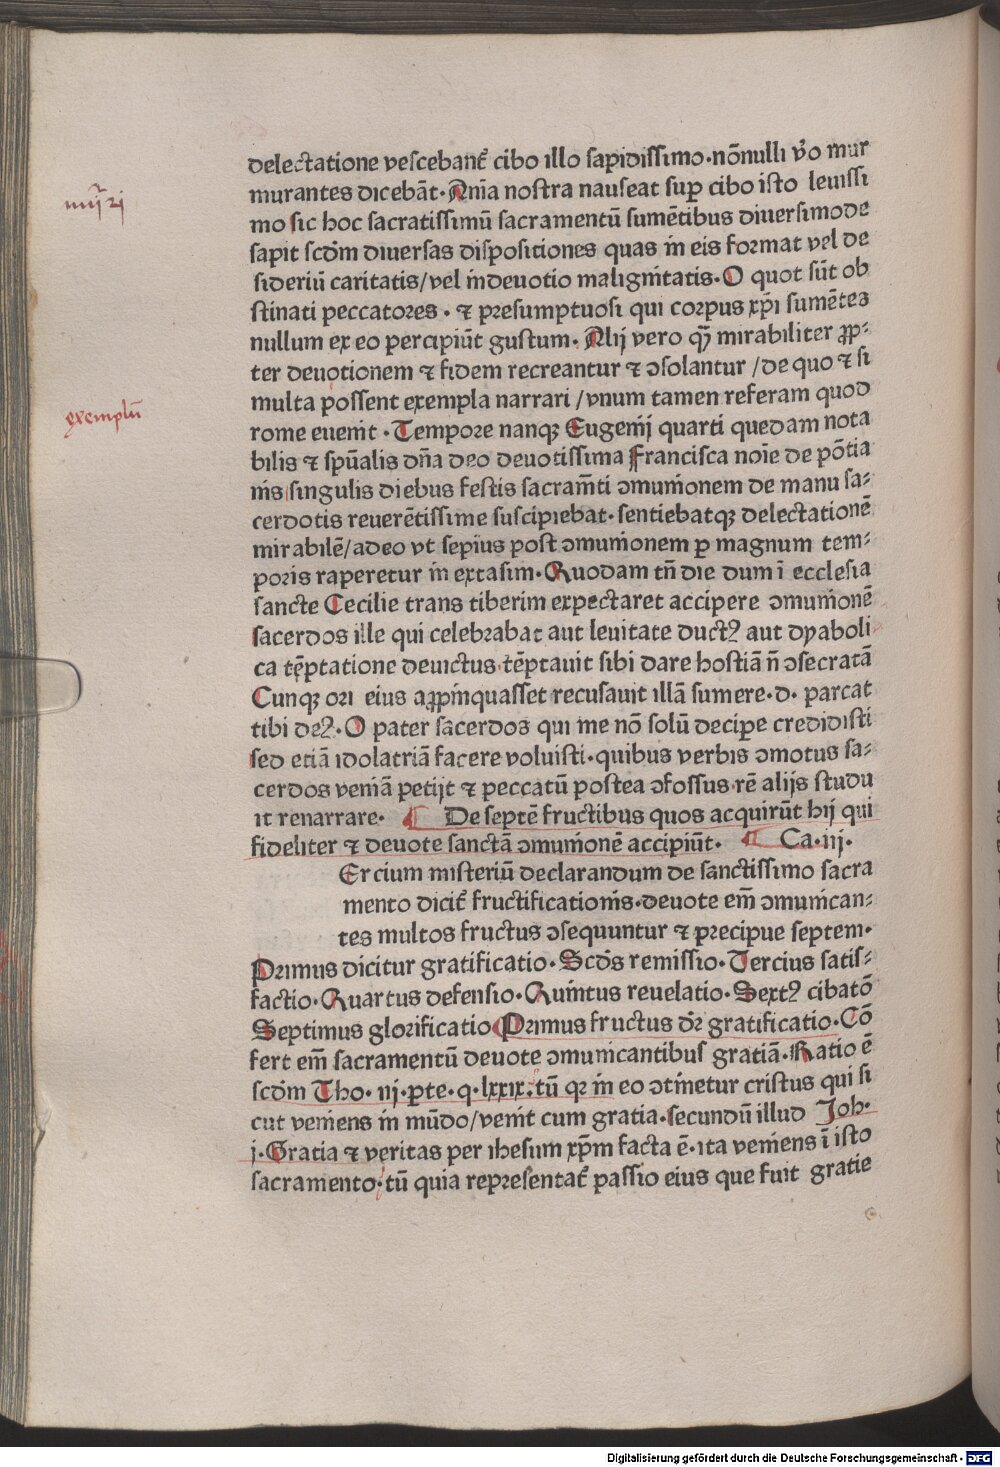 delectatione vescebant᷑ cibo illo sapidissimo·nōnulli v̓o mur
murantes dicebāt·Anīa nostra nauseat suꝑ cibo isto leuissi
mo sic hoc sacratissimū sacramentū sumētibus diuersimode
sapit scd̄m diuersas dispositiones quas in eis format vel de
sideriū caritatis/vel indeuotio malignitatis·O quot sūt ob
stinati peccatores·⁊ presumptuosi qui corpus xp̄i sumētes
nullum ex eo percipiūt gustum·Alij vero qȝ mirabiliter ꝓp⸗
ter deuotionem ⁊ fidem recreantur ⁊ ↄsolantur/de quo ⁊ si
multa possent exempla narrari/vnum tamen referam quod
rome euenit·Tempore nanqȝ Eugenij quarti quedam nota
bilis ⁊ spūalis dn̄a deo deuotissima Francisca noīe de pōtia
nis singulis diebus festis sacram̄ti ↄmunionem de manu sa⸗
cerdotis reuerētissime suscipiebat·sentiebatqȝ delectationē
mirabilē/adeo vt sepius post ↄmunionem ꝑ magnum tem⸗
poris raperetur in extasim·Quodam tn̄ die dum ī ecclesia
sancte Cecilie trans tiberim expectaret accipere ↄmunionē
sacerdos ille qui celebrabat aut leuitate duct⁹ aut dyaboli
ca tēptatione deuictus tēptauit sibi dare hostiā n̄ ↄsecratā
Cunqȝ ori eius aꝓpinquasset recusauit illā sumere·d· parcat
tibi de⁹·O pater sacerdos qui me nō solū decipe credidisti
sed etiā idolatriā facere voluisti·quibus verbis ↄmotus sa⸗
cerdos veniā petijt ⁊ peccatū postea ↄfossus rē alijs studu
it renarrare· ¶ De septē fructibus quos acquirūt hij qui
fideliter ⁊ deuote sanctā ↄmunionē accipiūt· ¶ Ca·iij·
Ercium misteriū declarandum de sanctissimo sacra
mento dicit᷑ fructificationis·deuote em̄ ↄmunican⸗
tes multos fructus ↄsequuntur ⁊ precipue septem·
Primus dicitur gratificatio·Scd̄s remissio·Tercius satis⸗
factio·Quartus defensio·Quintus reuelatio·Sext⁹ cibatō
Septimus glorificatio Primus fructus dr̄ gratificatio·Cō
fert em̄ sacramentū deuote ↄmunicantibus gratiā·Ratio ē
scd̄m Tho·iij·ꝑte·q·lxxix·tū qꝛ in eo ↄtinetur cristus qui si
cut veniens in mūdo/venit cum gratia·secundū illud Joh·
j·Gratia ⁊ veritas per ihesum xp̄m facta ē·ita veniens ī isto
sacramento·tū quia representat᷑ passio eius que fuit gratie
exemplū
Digitalisierung gefördert durch die Deutsche Forschungsgemeinschaft · DFG